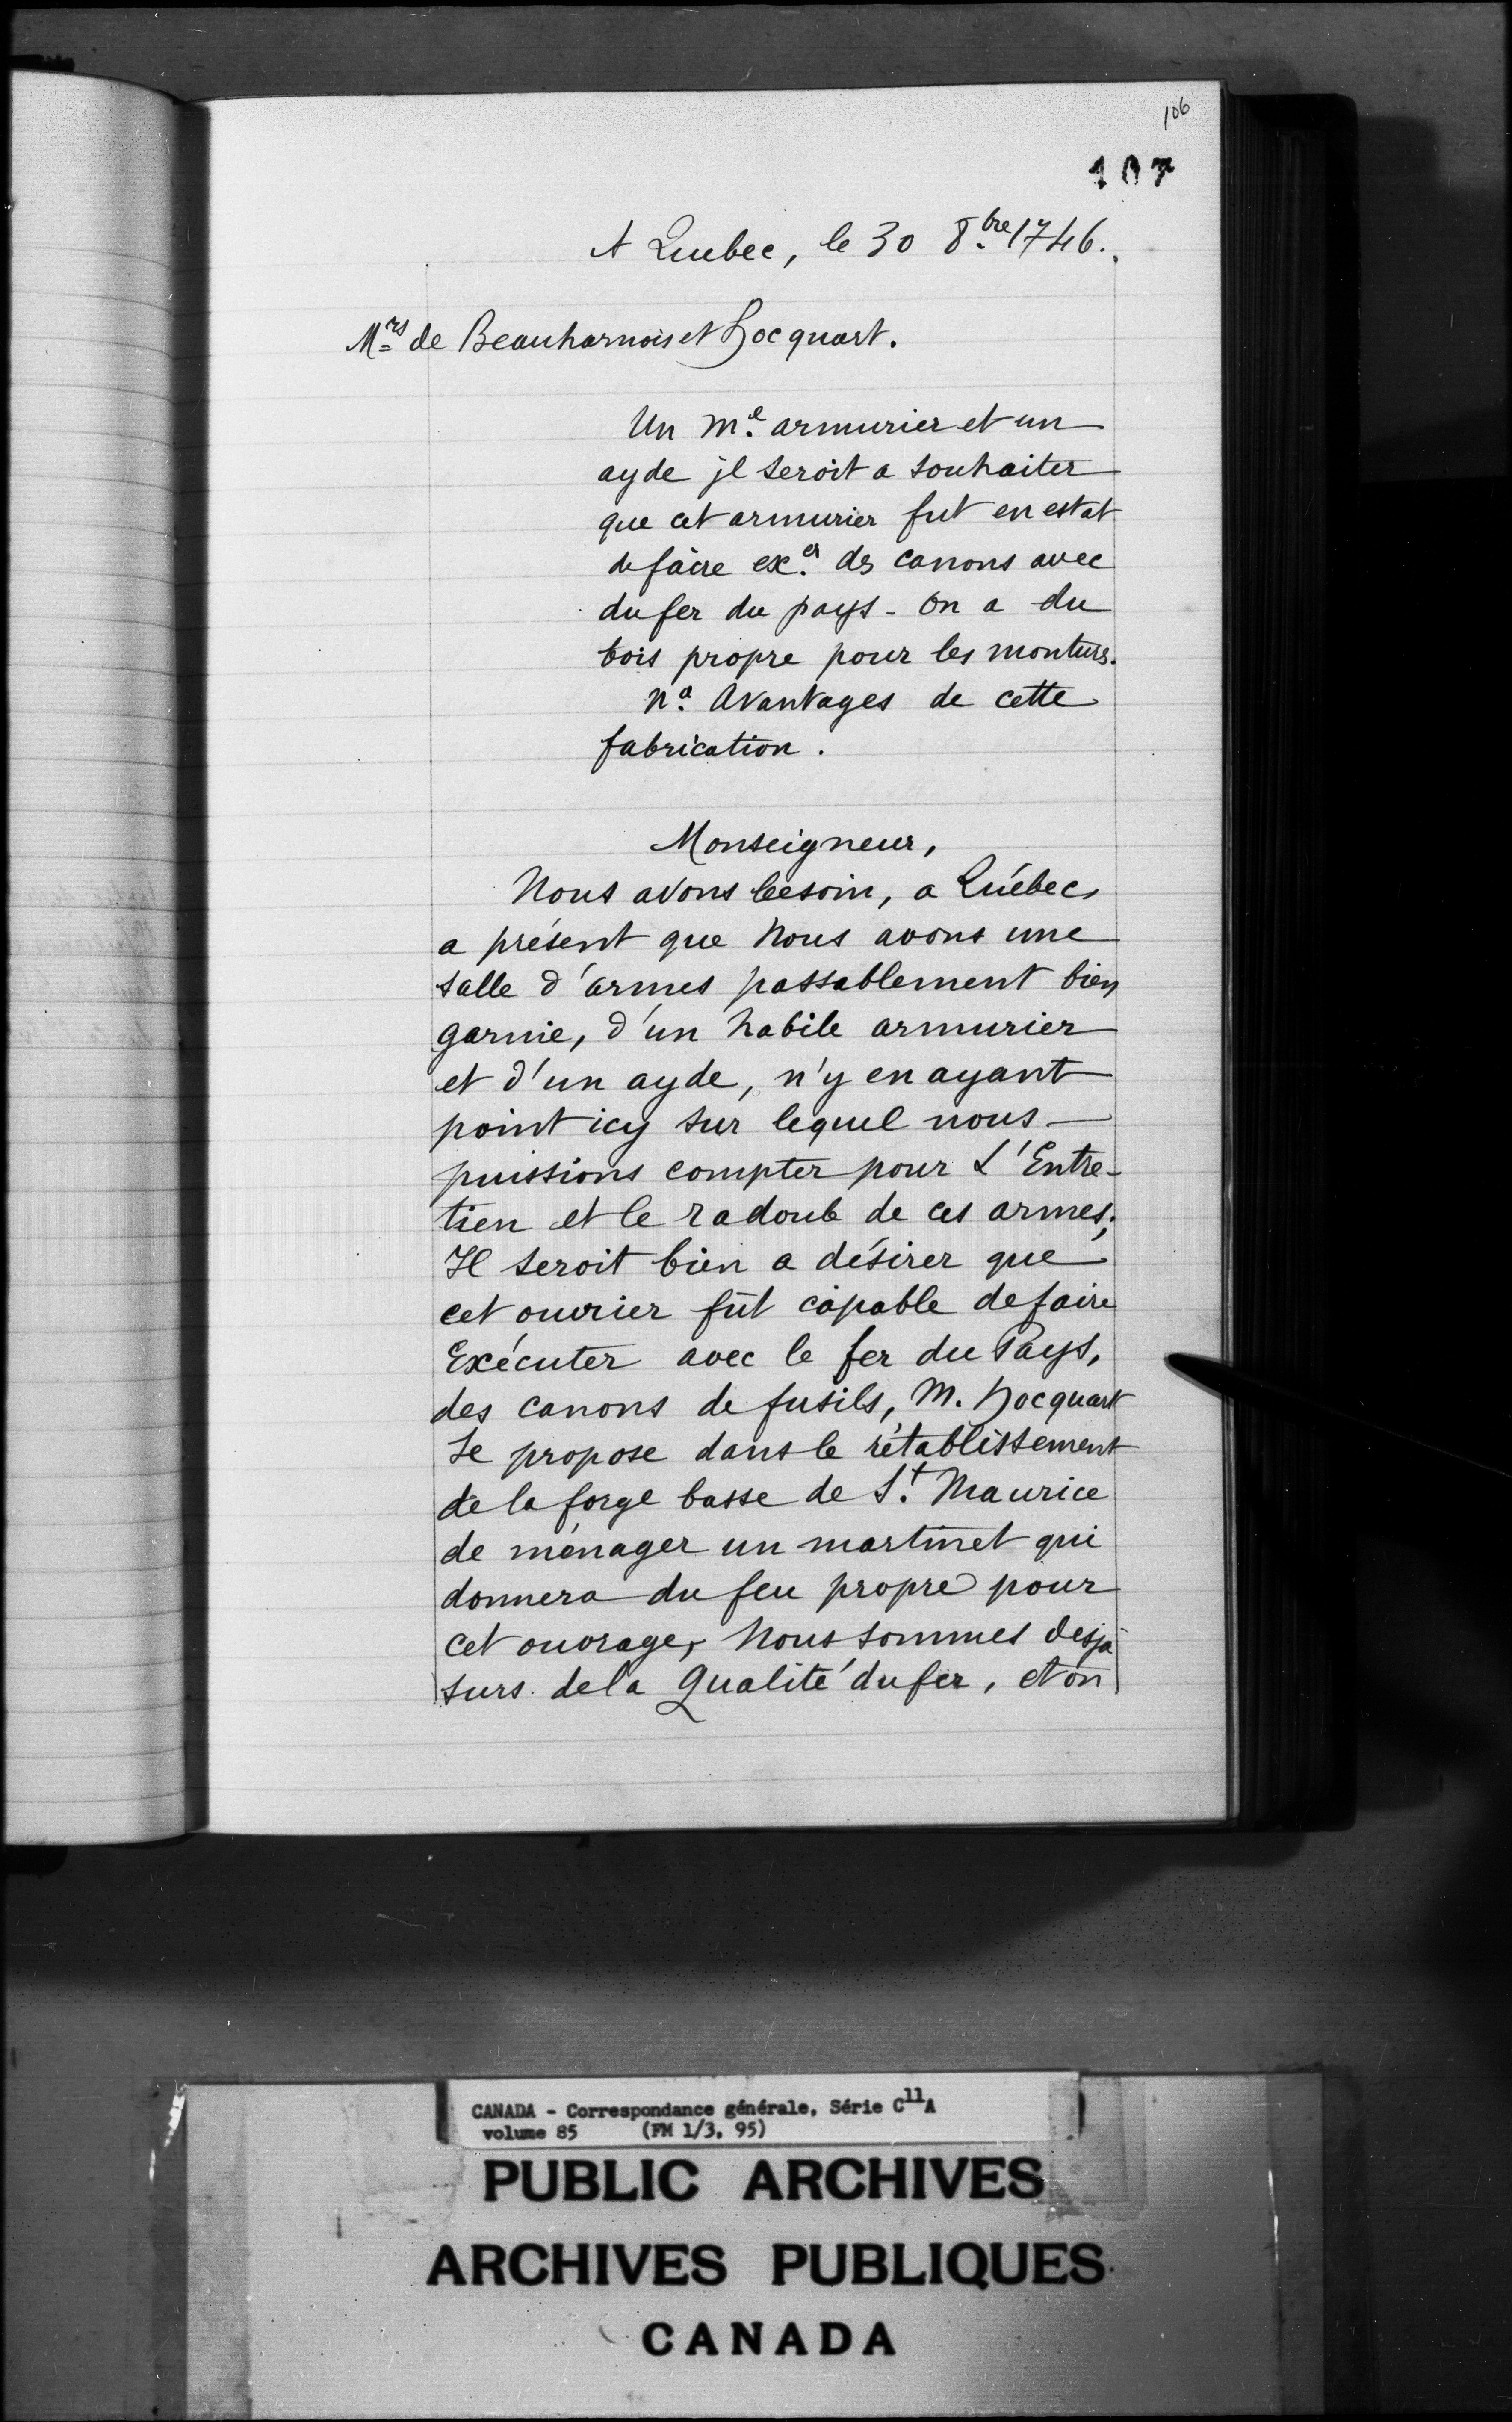 106
107
A Quebec, le 30 8.bre 1746.
Mrs de Beauharnois et Hocquart.
Un me. armurier et un
ayde jl seroit a souhaiter
que cet armurier fut en estat
de faire ex.er des canons avec
du fer du pays - On a du
bois propre pour les monturs.
na. Avantages de cette
fabrication.
Monseigneur,
Nous avons besoin, a Québec,
a présent que Nous avons une
salle d'armes passablement bien
garnie, d'un habile armurier
et d'un ayde, n'y en ayant
point icy sur lequel nous
puissions compter pour L'Entre-
tien et le radoub de ces armes;
Il seroit bien a désirer que
cet ouvrier fût capable de faire
Exécuter avec le fer du Pays,
des canons de fusils, M. Hocquart
Se propose dans le rétablissement
de la forge basse de St. Maurice
de ménager un martinet qui
donnera du feu propre pour
cet ouvrage, Nous sommes desjà
surs de la Qualité du fer, et on
CANADA - Correspondance générale, Série C11A
volume 85 (FM 1/3, 95)
PUBLIC ARCHIVES
ARCHIVES PUBLIQUES
CANADA